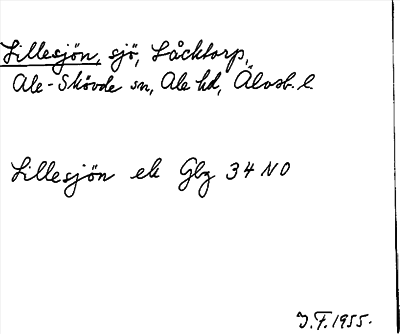 Lillesjön, sjö, Låcktorp,
Ale-Skövde sn, Ale hd, Älvsb. l
Lillesjön ek Gbg 34 NO
J.F. 1955.